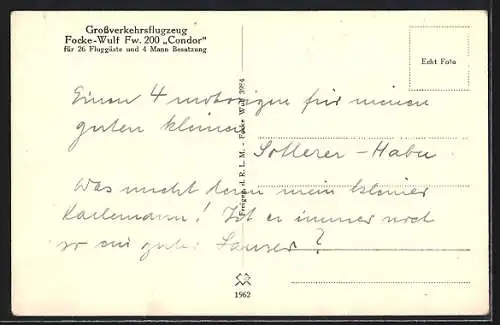 Großverkehrsflugzeug
Focke-Wulf Fw. 200 „Condor"
für 26 Fluggäste und 4 Mann Besatzung
Echt Foto
Freigeg. d. R. L. M. - Focke Wulf 3984
Einen 4 motorigen für meinen
guten kleinen
Was macht denn mein kleiner
Karlemann! Ist er immer noch
so ein guter
1962